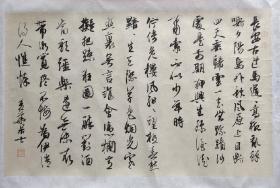 長安古道馬遲遲高柳亂蟬
嘶夕陽鳥外秋風原上目斷
四天垂歸雲一去無蹤跡何
處是前期狎興生疏酒徒
蕭索不似少年時
佇倚危樓風細細望極春愁
黯黯生天際草色煙光殘
照裏無言誰會憑闌意
擬把疏狂圖一醉對酒
當歌強樂還無味衣
帶漸寬終不悔為伊消
得人憔悴